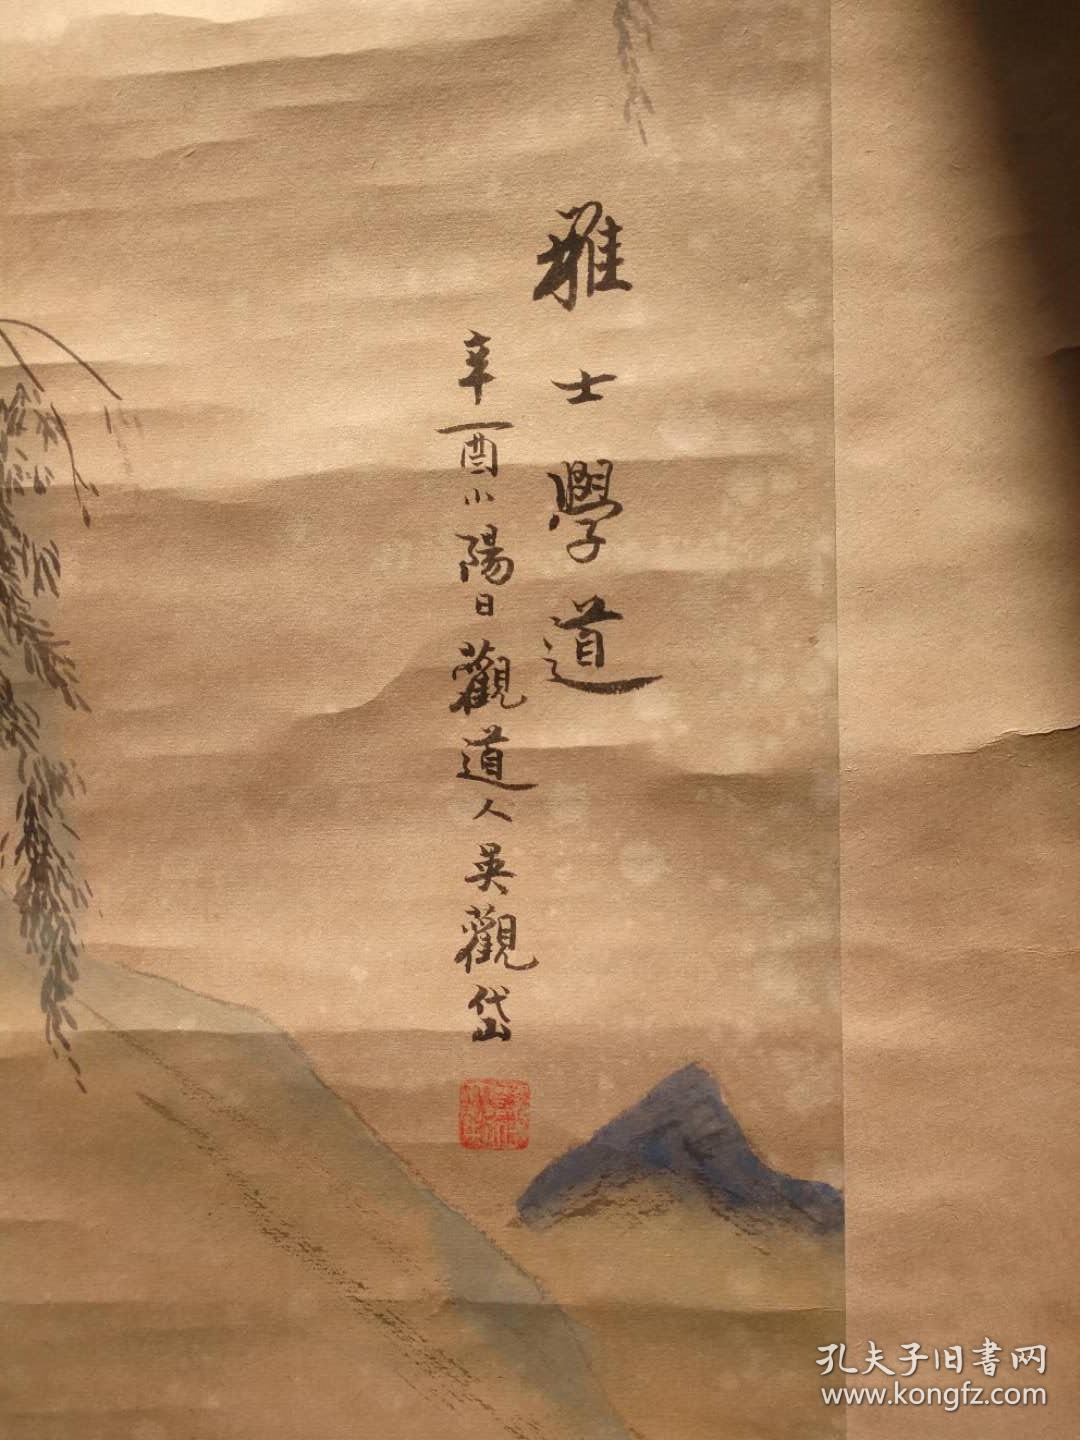 雅士學道
辛酉小陽日觀道人吳觀岱
孔夫子旧書网
www.kongfz.com